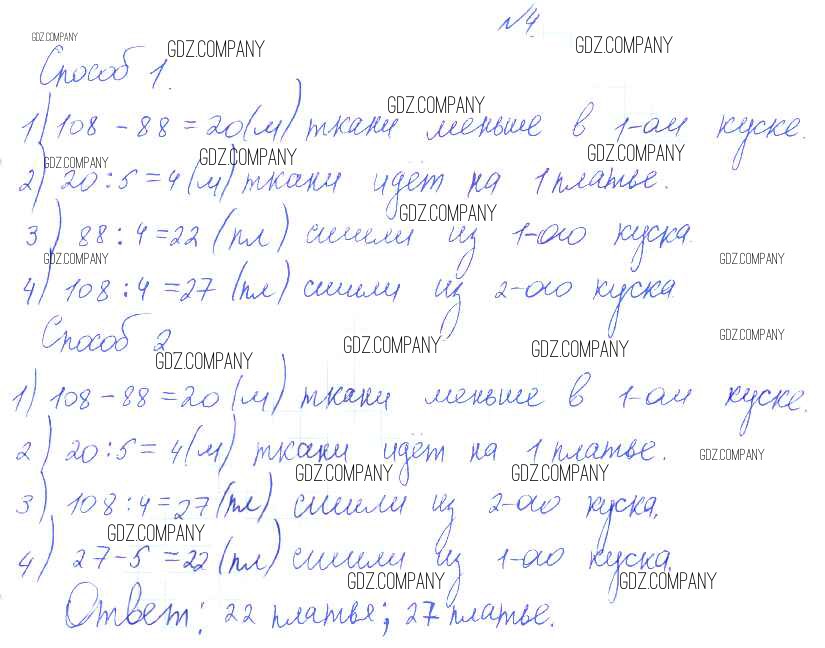 №4.
GDZ.COMPANY GDZ.COMPANY GDZ.COMPANY
Способ 1.
GDZ.COMPANY
1) 108 - 88 = 20 (м) ткани меньше в 1-ом куске.
GDZ.COMPANY GDZ.COMPANY GDZ.COMPANY
2) 20 : 5 = 4 (м) ткани идёт на 1 платье.
GDZ.COMPANY
3) 88 : 4 = 22 (пл) сшили из 1-ого куска.
GDZ.COMPANY GDZ.COMPANY
4) 108 : 4 = 27 (пл) сшили из 2-ого куска
Способ 2
GDZ.COMPANY GDZ.COMPANY GDZ.COMPANY GDZ.COMPANY
1) 108 - 88 = 20 (м) ткани меньше в 1-ом куске.
2) 20 : 5 = 4 (м) ткани идёт на 1 платье.
GDZ.COMPANY
GDZ.COMPANY GDZ.COMPANY
3) 108 : 4 = 27 (пл) сшили из 2-ого куска.
GDZ.COMPANY
4) 27 - 5 = 22 (пл) сшили из 1-ого куска.
GDZ.COMPANY GDZ.COMPANY
Ответ: 22 платья; 27 платье.